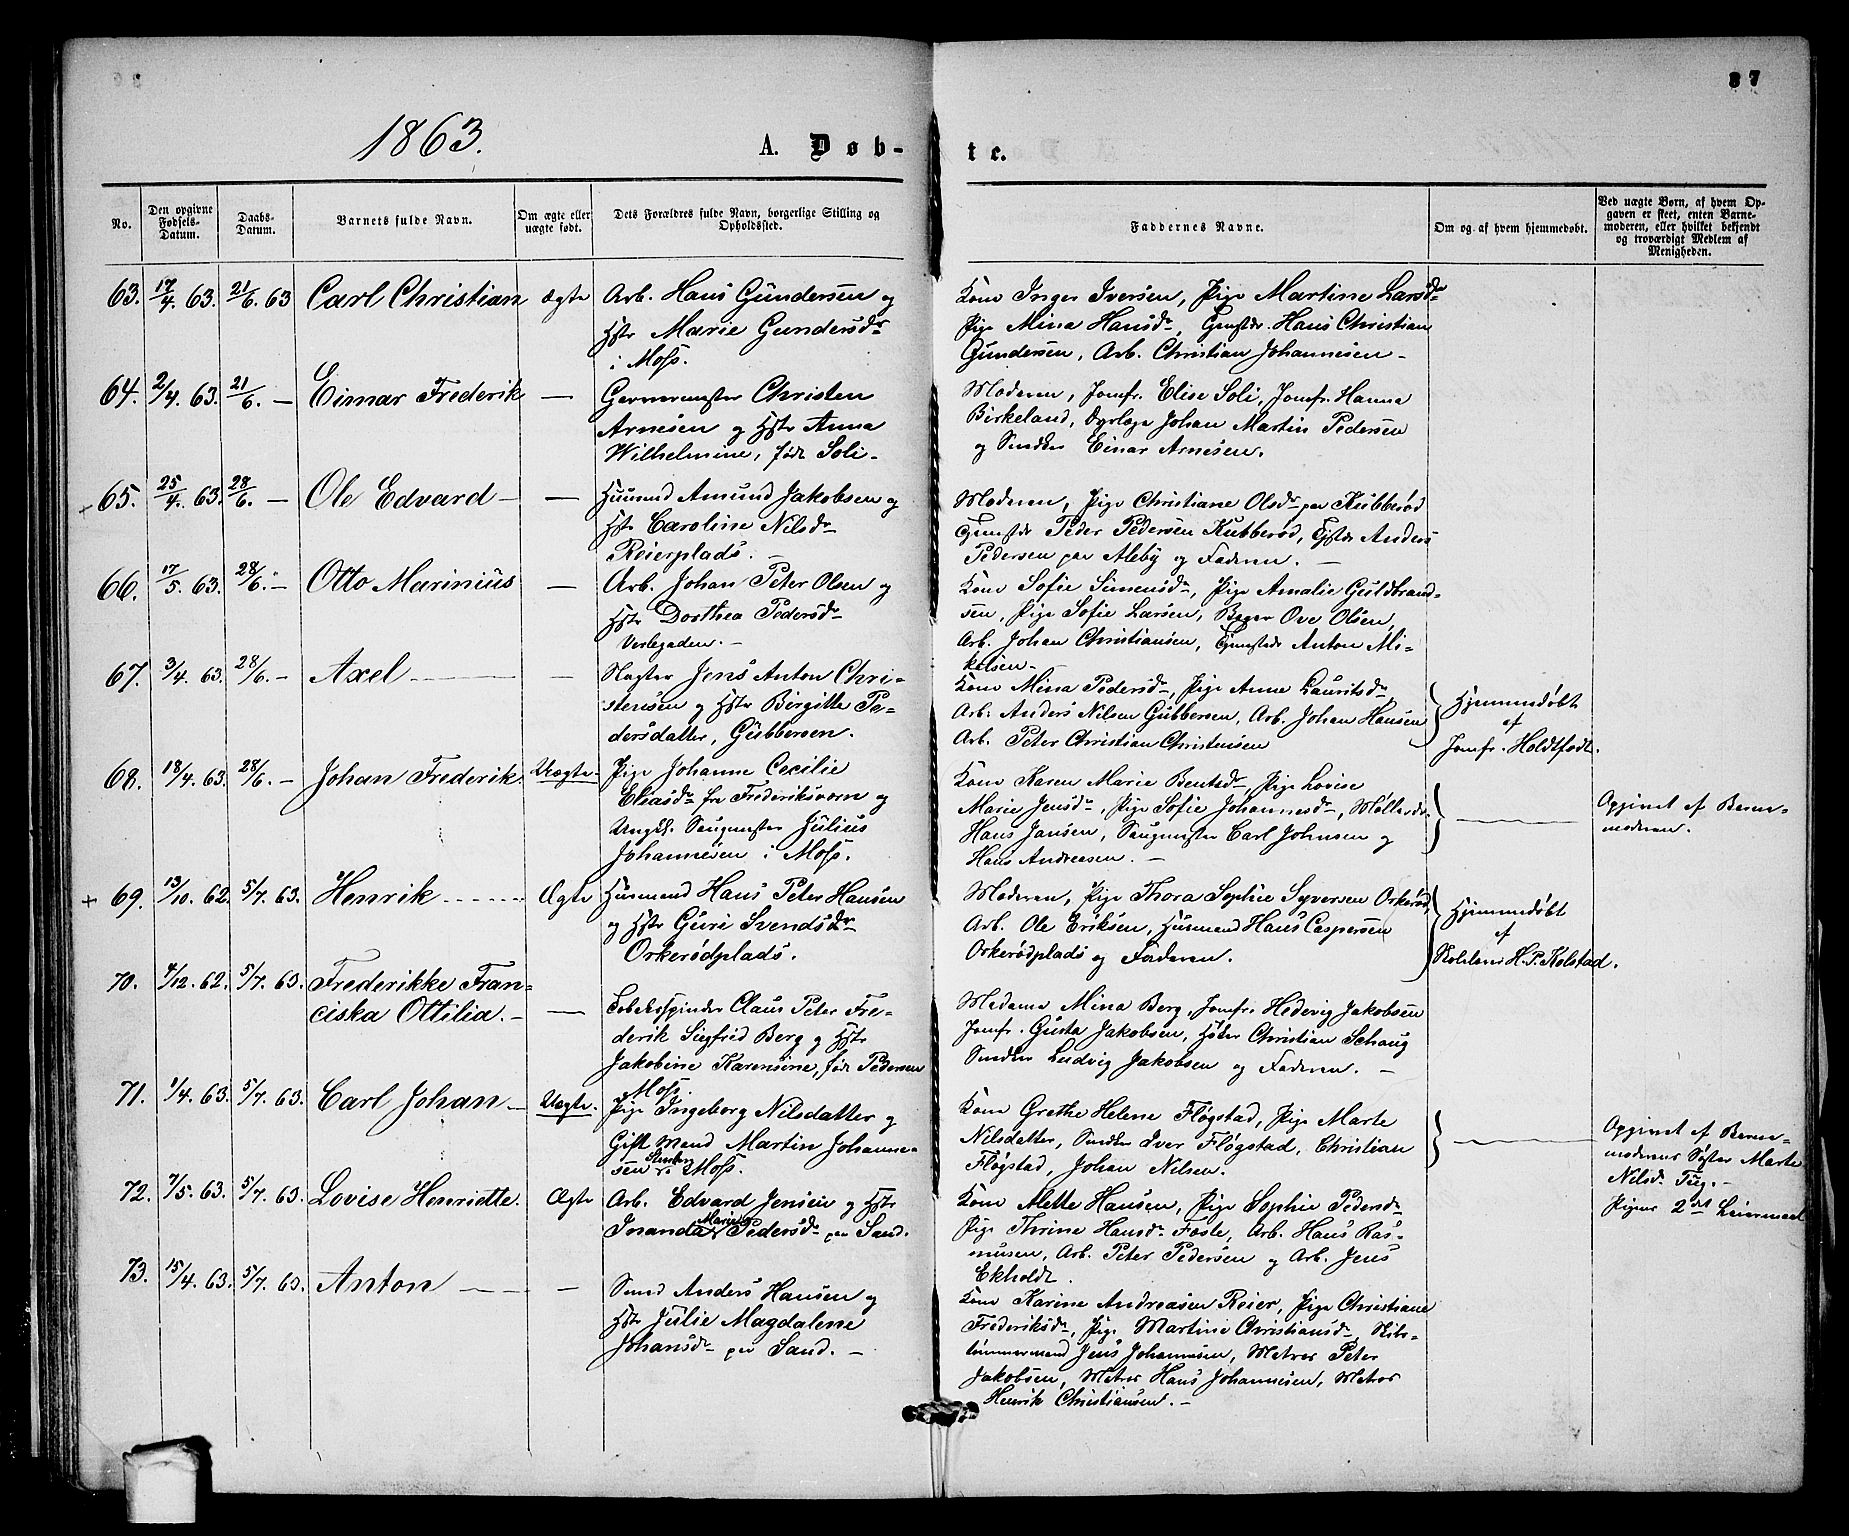 87
1863.
A. Døb-
te.
No.
Den opgivne Fødsels-Datum.
Daabs-Datum.
Barnets fulde Navn.
Om ægte eller uægte født.
Dets Forældres fulde Navn, borgerlige Stilling og Opholdssted.
Faddernes Navne.
Om og af hvem hjemmedøbt.
Ved uægte Børn, af hvem Opgaven er skeet, enten Barnemoderen, eller hvilket bekjendt og troværdigt Medlem af Menigheden.
63. 17/4. 63. 21/6. 63 Carl Christian Ægte
Arb. Hans Gundersen og
Hstr Marie Gundersdr
i Moss.
Kone Inger Iversen, Pige Martine Larsdr
Pige Mina Hansdr, Gmstdr. Hans Christian
Gundersen, Arb. Christian Johannesen -
64. 2/4. 63. 21/6. - Einar Frederik -
Garvermester Christen
Arnesen og Hstr Anna
Wilhelmine, født Soli -
Moderen, Jomfr. Elise Soli, Jomfr. Hanna
Birkeland, Dyrlæge Johan Martin Pedersen
og Snedker Einar Arnesen.
+ 65. 25/4. 63. 28/6. - Ole Edvard - -
Huusmd Amund Jakobsen og
Hstr Caroline Nilsdr
Reierplads. -
Moderen, Pige Christiane Olsdr paa Kubberød
Gmstdr Peder Pedersen Kubberød, Gstdr Anders
Pedersen paa Aleby og Faderen. -
66. 17/5. 63. 28/6. - Otto Marinius -
Arb. Johan Peter Olsen og
Hstr Dorthea Pedersdr
Værlegaden. -
Kone Sofie Simensdr, Pige Amalie Guldbrand-
sen, Pige Sofie Larsen, Bager Ove Olsen,
Arb. Johan Christiansen, Gmstdr Anton Mi-
kelsen -
67. 3/4. 63. 28/6. - Axel - -
Jens Anton Chri-
stensen og Hstr Birgitte Pe-
dersdatter, Gubbersen.
Kone Mina Pedersdr, Pige Anne Lauritsdr
Arb. Anders Nilsen Gubbersen, Arb. Johan Hansen
Arb. Peter Christian Christensen
Hjemmedøbt
af
Jomfr. Holdtfodt.
68. 18/4. 63. 28/6. - Johan Frederik Uægte.
Pige Johanne Cecilie
Eliasdr fra Frederiksværn og
Ungk. Saugmester Julius
Johannesen i Moss.
Kone Karen Marie Bentsdr, Pige Lovise
Marie Jensdr, Pige Sofie Johannesdr, Møllerdr.
Hans Jansen, Saugmester Carl Johnsen og
Hans Andreasen. -
Opgivet af Barne-
moderen.
+ 69. 13/10. 62. 5/7. 63. Henrik Ægte
Husmand Hans Peter Hansen
og Hstr Guri Svendsdr
Orkerødplads.
Moderen, Pige Thora Sophie Syversen Orkerød,
Arb. Ole Eriksen, Husmand Hans Caspersen
Orkerødplads og Faderen.
Hjemmedøbt
af
Skolelærer H. P. Kolstad.
70. 4/12. 62. 5/7. 63. Frederikke Fran-
ciska Ottilia. - -
Tobaksspinder Claus Peter Fre-
derik Siegfried Berg og Hstr
Jakobine Karensine, født Pedersen
Moss.
Madame Mina Berg, Jomfr. Hedevig Jakobsen
Jomfr. Gusta Jakobsen, Christian Schaug
Snedker Ludvig Jakobsen og Faderen. -
71. 1/4. 63. 5/7. 63. Carl Johan - Uægte.
Pige Ingeborg Nilsdatter og
Gift Mand Martin Johanne-
sen Moss.
Kone Grethe Helene Fløgstad, Pige Marte
Nilsdatter, Snedker Iver Fløgstad, Christian
Fløgstad, Johan Nilsen.
Opgivet af Barne-
moderens Søster Marte
Nilsd. -
Pigens 2det Leiermaal
72. 7/5. 63. 5/7. 63. Lovise Henriette. Ægte
Arb. Edvard Jensen og Hstr
Inanda Marie Pedersdr paa Sand.
Kone Alette Hansen, Pige Sophie Pedersdr
Pige Thrine Hansdr Fosle, Arb. Hans Ras-
musen, Arb. Peter Pedersen og Arb. Jens
Ekholdt.
73. 15/4. 63. 5/7. 63. Anton - -
Smed Anders Hansen og
Hstr Julie Magdalene
Johansdr paa Sand. -
Kone Karine Andreasen Reier, Pige Christiane
Frederiksdr, Pige Martine Christiansdr, Skibs-
tømmermand Jens Johannesen, Matros Peter
Jakobsen, Matros Hans Johannesen, Matros
Henrik Christiansen. -